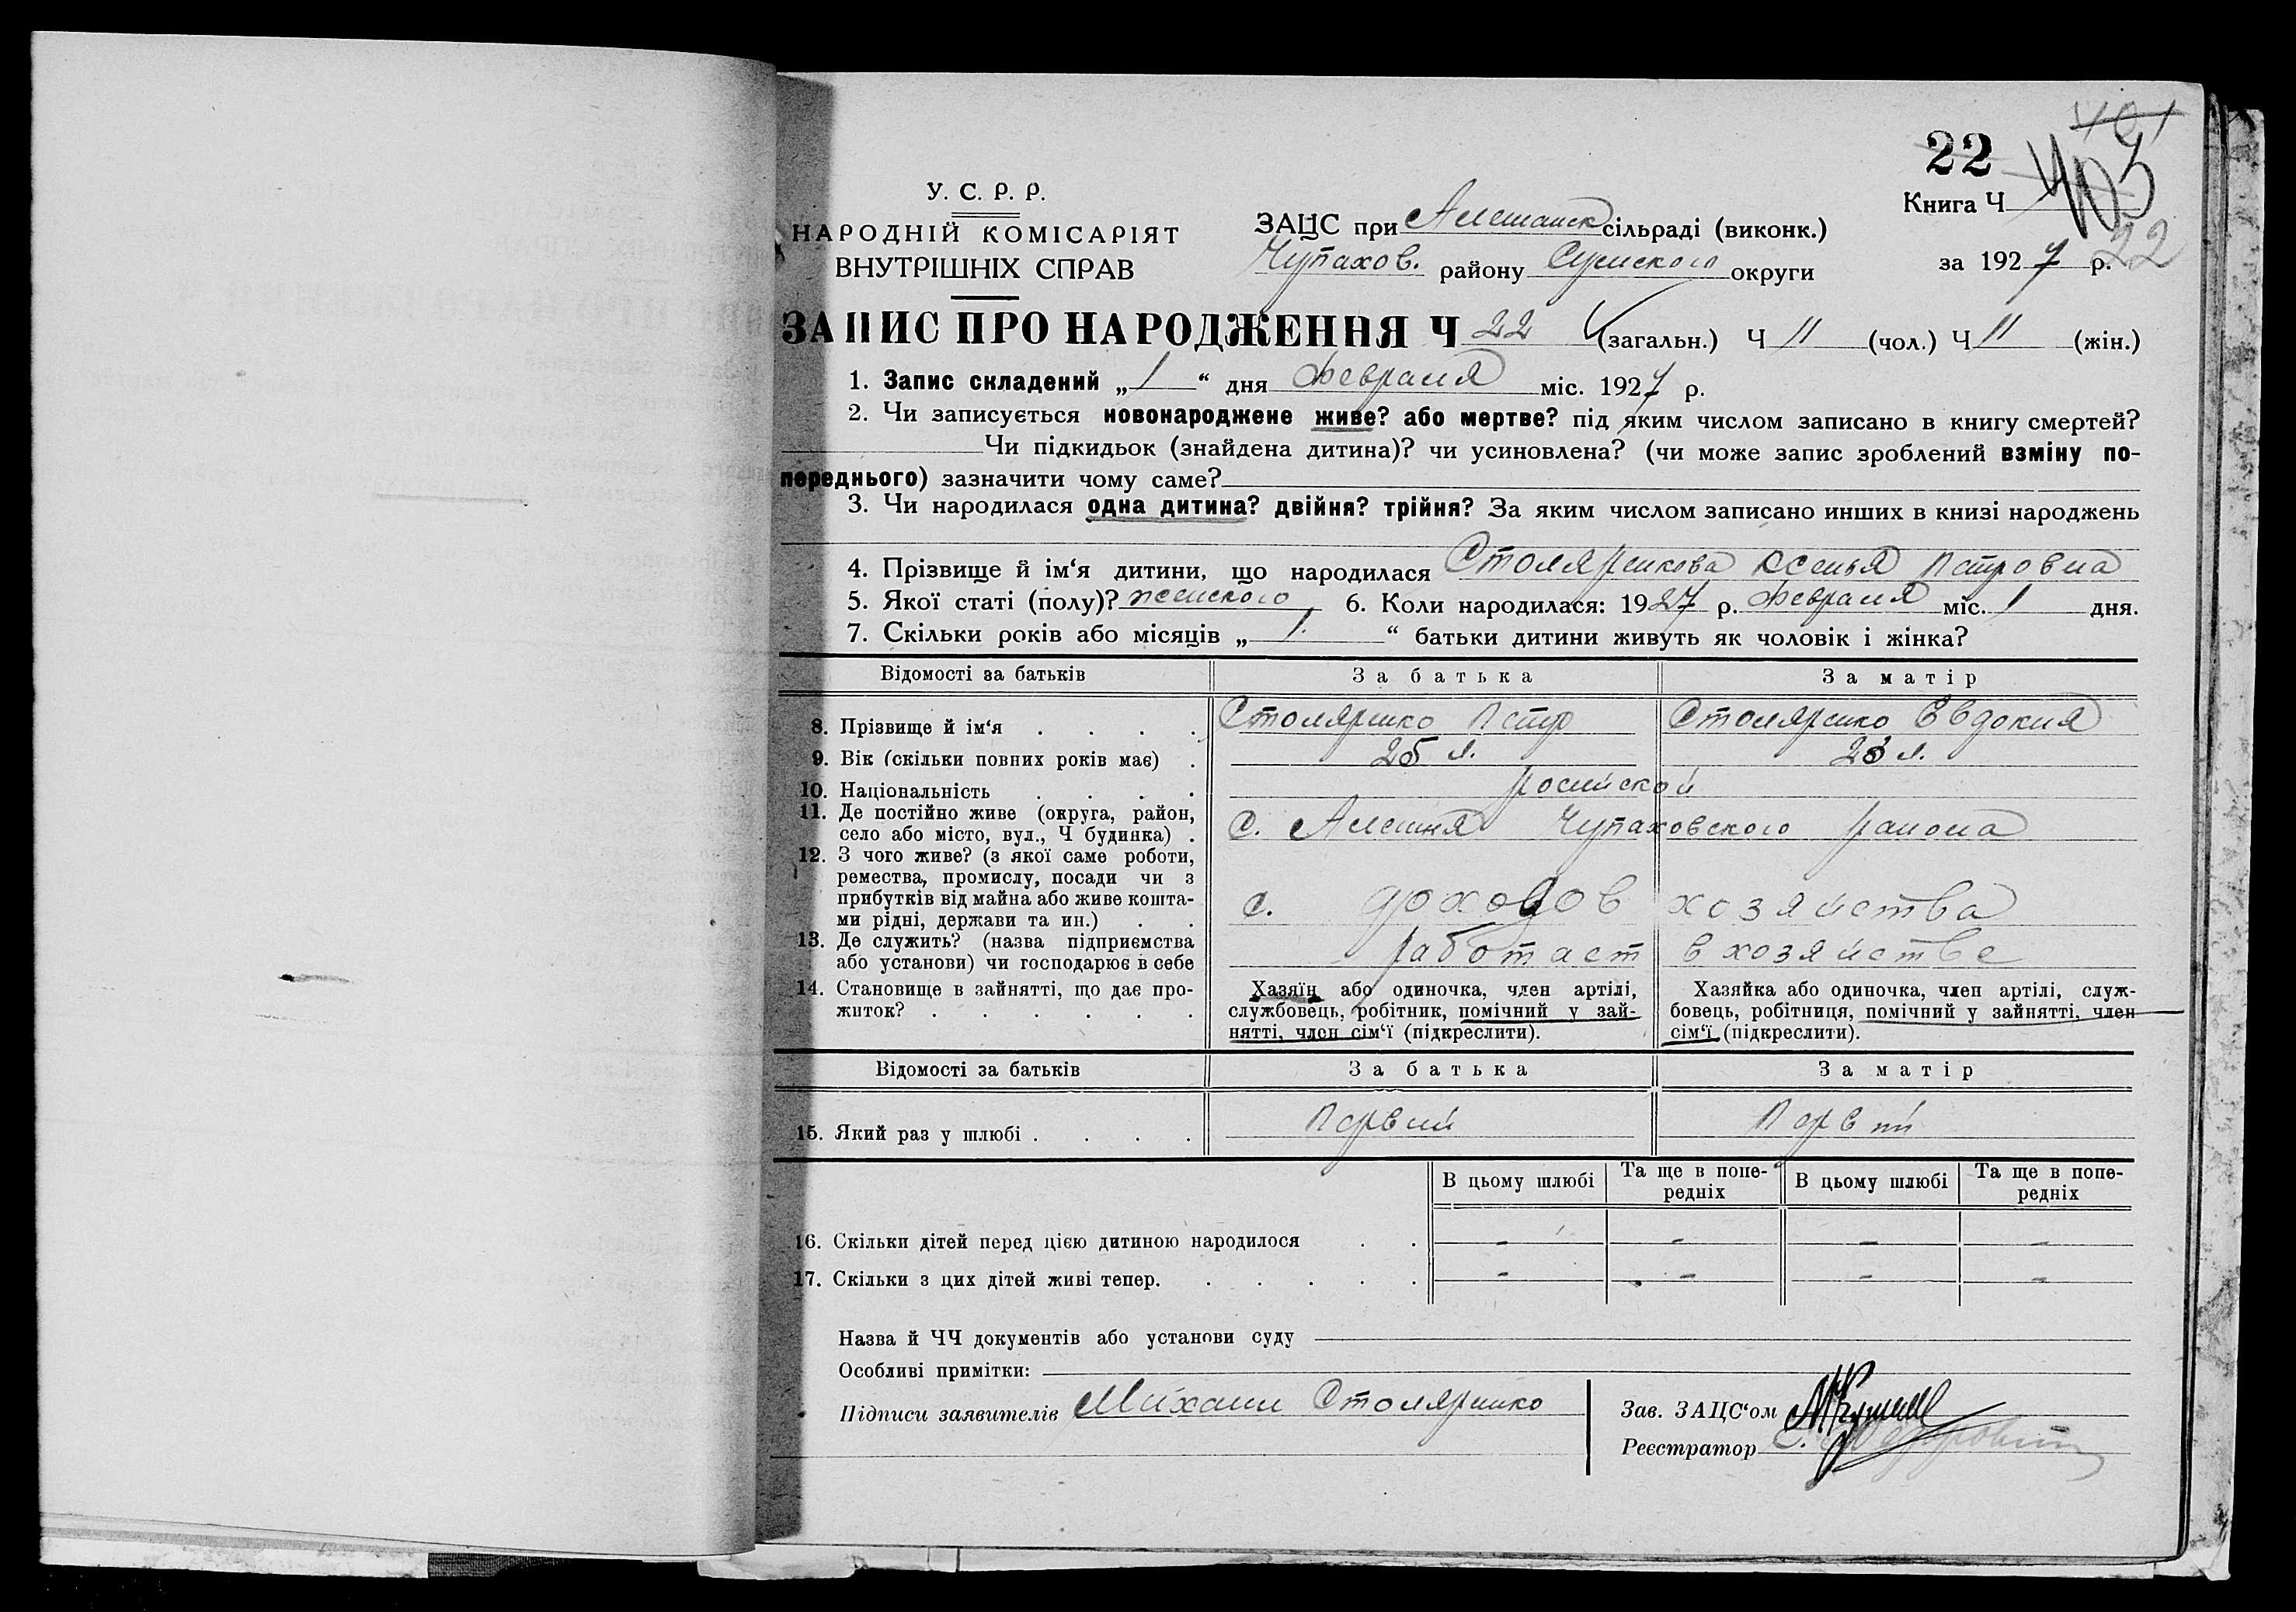 401
22
403
У. С. Р. Р.
НАРОДНІЙ КОМІСАРІЯТ
ВНУТРІШНІХ СПРАВ
ЗАЦС при Алешанск сільраді (виконк.)
Чупахов. району Сумского округи
Книга Ч
за 1927 р. 22
ЗАПИС ПРО НАРОДЖЕННЯ Ч 22 (загальн.) Ч 11 (чол.) Ч 11 (жін.)
1. Запис складений „1“ дня февраля міс. 1927 р.
2. Чи записується новонароджене живе? або мертве? під яким числом записано в книгу смертей?
Чи підкидьок (знайдена дитина)? чи усиновлена? (чи може запис зроблений взміну по-
переднього) зазначити чому саме?
3. Чи народилася одна дитина? двійня? трійня? За яким числом записано инших в книзі народжень
4. Прізвище й ім‘я дитини, що народилася Столярчкова Ксенья Петровна
5. Якої статі (полу)? женского 6. Коли народилася: 1927 р. февраля міс. 1 дня.
7. Скільки років або місяців „1.“ батьки дитини живуть як чоловік і жінка?
Відомості за батьків За батька За матір
8. Прізвище й ім‘я . . . . Столярчко Петр Столярчко Евдокия
9. Вік (скільки повних років має) . 25 л. 23 л.
10. Національність . . . . росийской
11. Де постійно живе (округа, район,
село або місто, вул., Ч будинка) . с. Алешня Чупаховского района
12. З чого живе? (з якої саме роботи,
ремества, промислу, посади чи з
прибутків від майна або живе кошта-
ми рідні, держави та ин.) . . с. доходов хозяйства
13. Де служить? (назва підприємства
або установи) чи господарює в себе работает в хозяйстве
14. Становище в зайнятті, що дає про-
житок? . . . . . .
Хазяїн або одиночка, член артілі,
службовець, робітник, помічний у зай-
нятті, член сім‘ї (підкреслити).
Хазяйка або одиночка, член артілі, служ-
бовець, робітниця, помічний у зайнятті, член
сім‘ї (підкреслити).
Відомості за батьків За батька За матір
15. Який раз у шлюбі . . . . Первий Первий
В цьому шлюбі Та ще в попе-
редніх В цьому шлюбі Та ще в попе-
редніх
16. Скільки дітей перед цією дитиною народилося . . - - - -
17. Скільки з цих дітей живі тепер. . . . . . - - - -
Назва й ЧЧ документів або установи суду
Особливі примітки:
Підписи заявителів Михаил Столярчко
Зав. ЗАЦС‘ом
Реєстратор